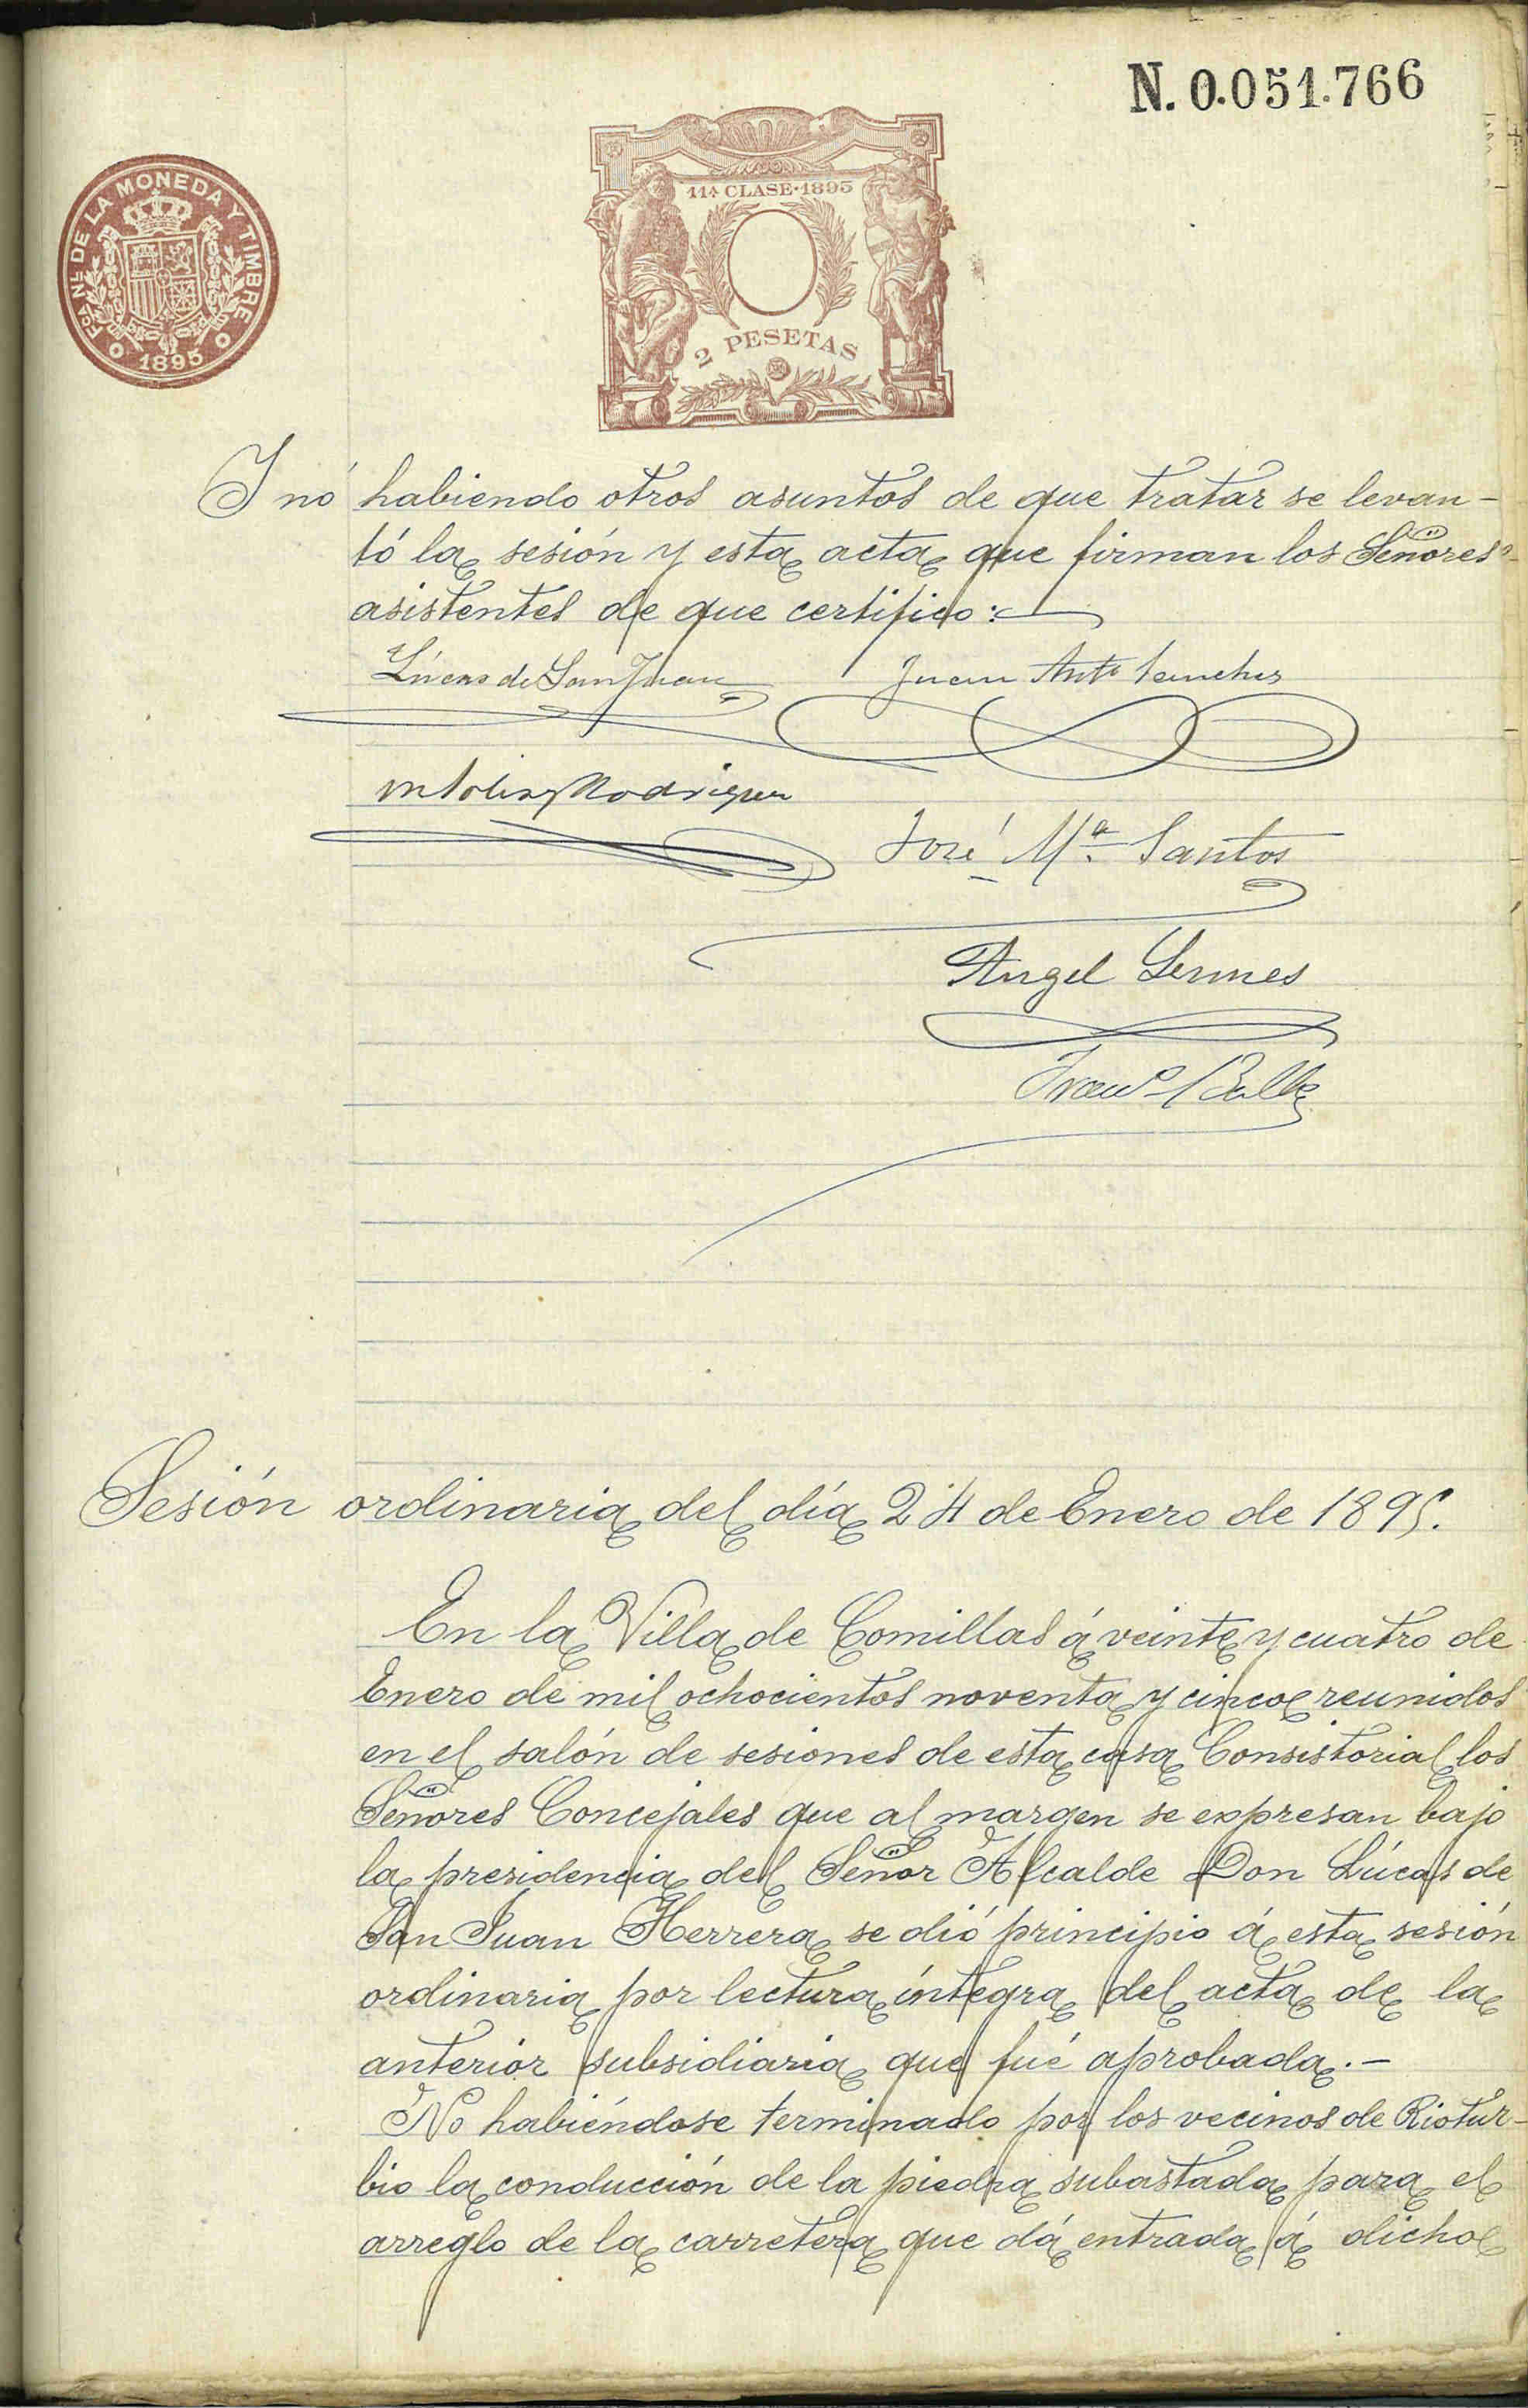 N. 0.051.766
FCA. NL. DE LA MONEDA Y TIMBRE
1895
11ª CLASE·1895
2 PESETAS
Y nó habiendo otros asuntos de que tratar se levan-
tó la sesión y esta acta que firman los Señores
asistentes de que certifico:
Lúcas de San Juan
Juan Antº Sanches
Rodriguez
José Mª Santos
Angel
Sesión ordinaria del día 24 de Enero de 1895.
En la Villa de Comillas á veinte y cuatro de
Enero de mil ochocientos noventa y cinco reunidos
en el salón de sesiones de esta casa Consistorial los
Señores Concejales que al margen se expresan bajo
la presidencia del Señor Alcalde Don Lúcas de
San Juan Herrera se dió principio á esta sesión
ordinaria por lectura íntegra del acta de la
anterior subsidiaria que fué aprobada.-
No habiéndose terminado por los vecinos de Riotur-
bio la conducción de la piedra subastada para el
arreglo de la carretera que dá entrada á dicho